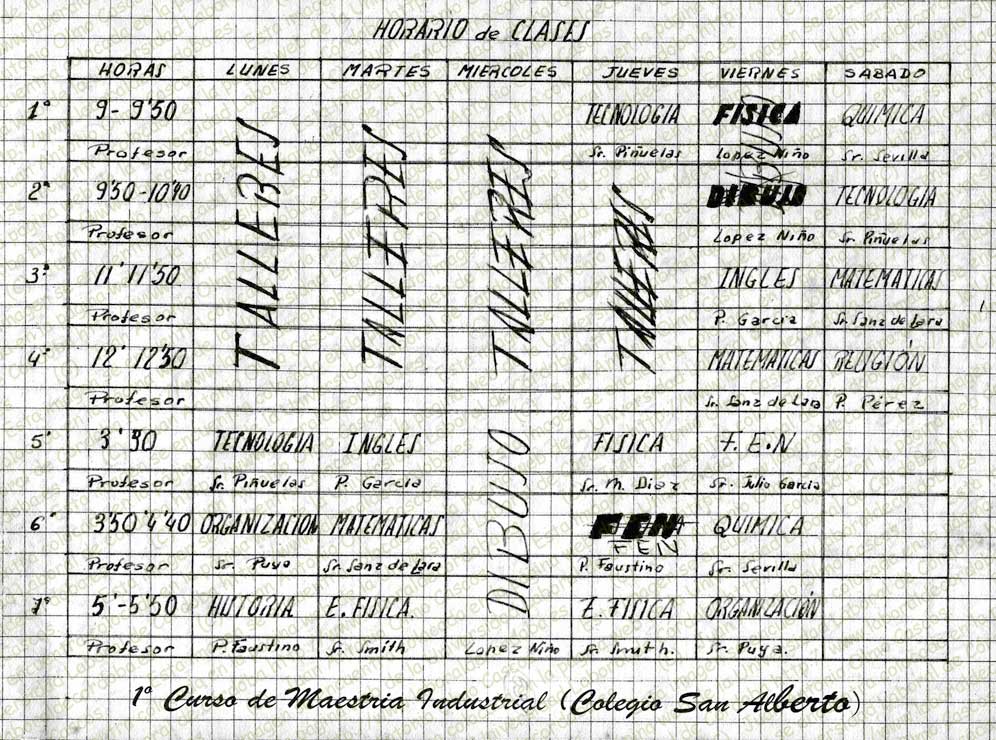 HORARIO de CLASES
HORAS LUNES MARTES MIERCOLES JUEVES VIERNES SABADO
1ª 9 - 9'50 TECNOLOGIA FISICA QUIMICA
Profesor Sr. Piñuelas Lopez Niño Sr. Sevilla
2ª 9'50 - 10'40 TALLERES TALLERES TALLERES TALLERES DIBUJO TECNOLOGIA
Profesor Lopez Niño Sr. Piñuelas
3ª 11' 11'50 INGLES MATEMATICAS
Profesor P. Garcia Sr. Sanz de Lara
4ª 12' 12'50 MATEMATICAS RELIGIÓN
Profesor Sr. Sanz de Lara P. Pérez
5ª TECNOLOGIA INGLES DIBUJO FISICA F.E.N
Profesor Sr. Piñuelas P. Garcia Sr. M. Diez Sr. Julio Garcia
6ª 3'50'4'40 ORGANIZACION MATEMATICAS FEN QUIMICA
FEN
Profesor Sr. Puya Sr. Sanz de Lara P. Faustino Sr. Sevilla
7ª 5'-5'50 HISTORIA E. FISICA. E. FISICA ORGANIZACIÓN
Profesor P. Faustino Sr. Smith Lopez Niño Sr. Smith. Sr. Puya.
1º Curso de Maestria Industrial (Colegio San Alberto)